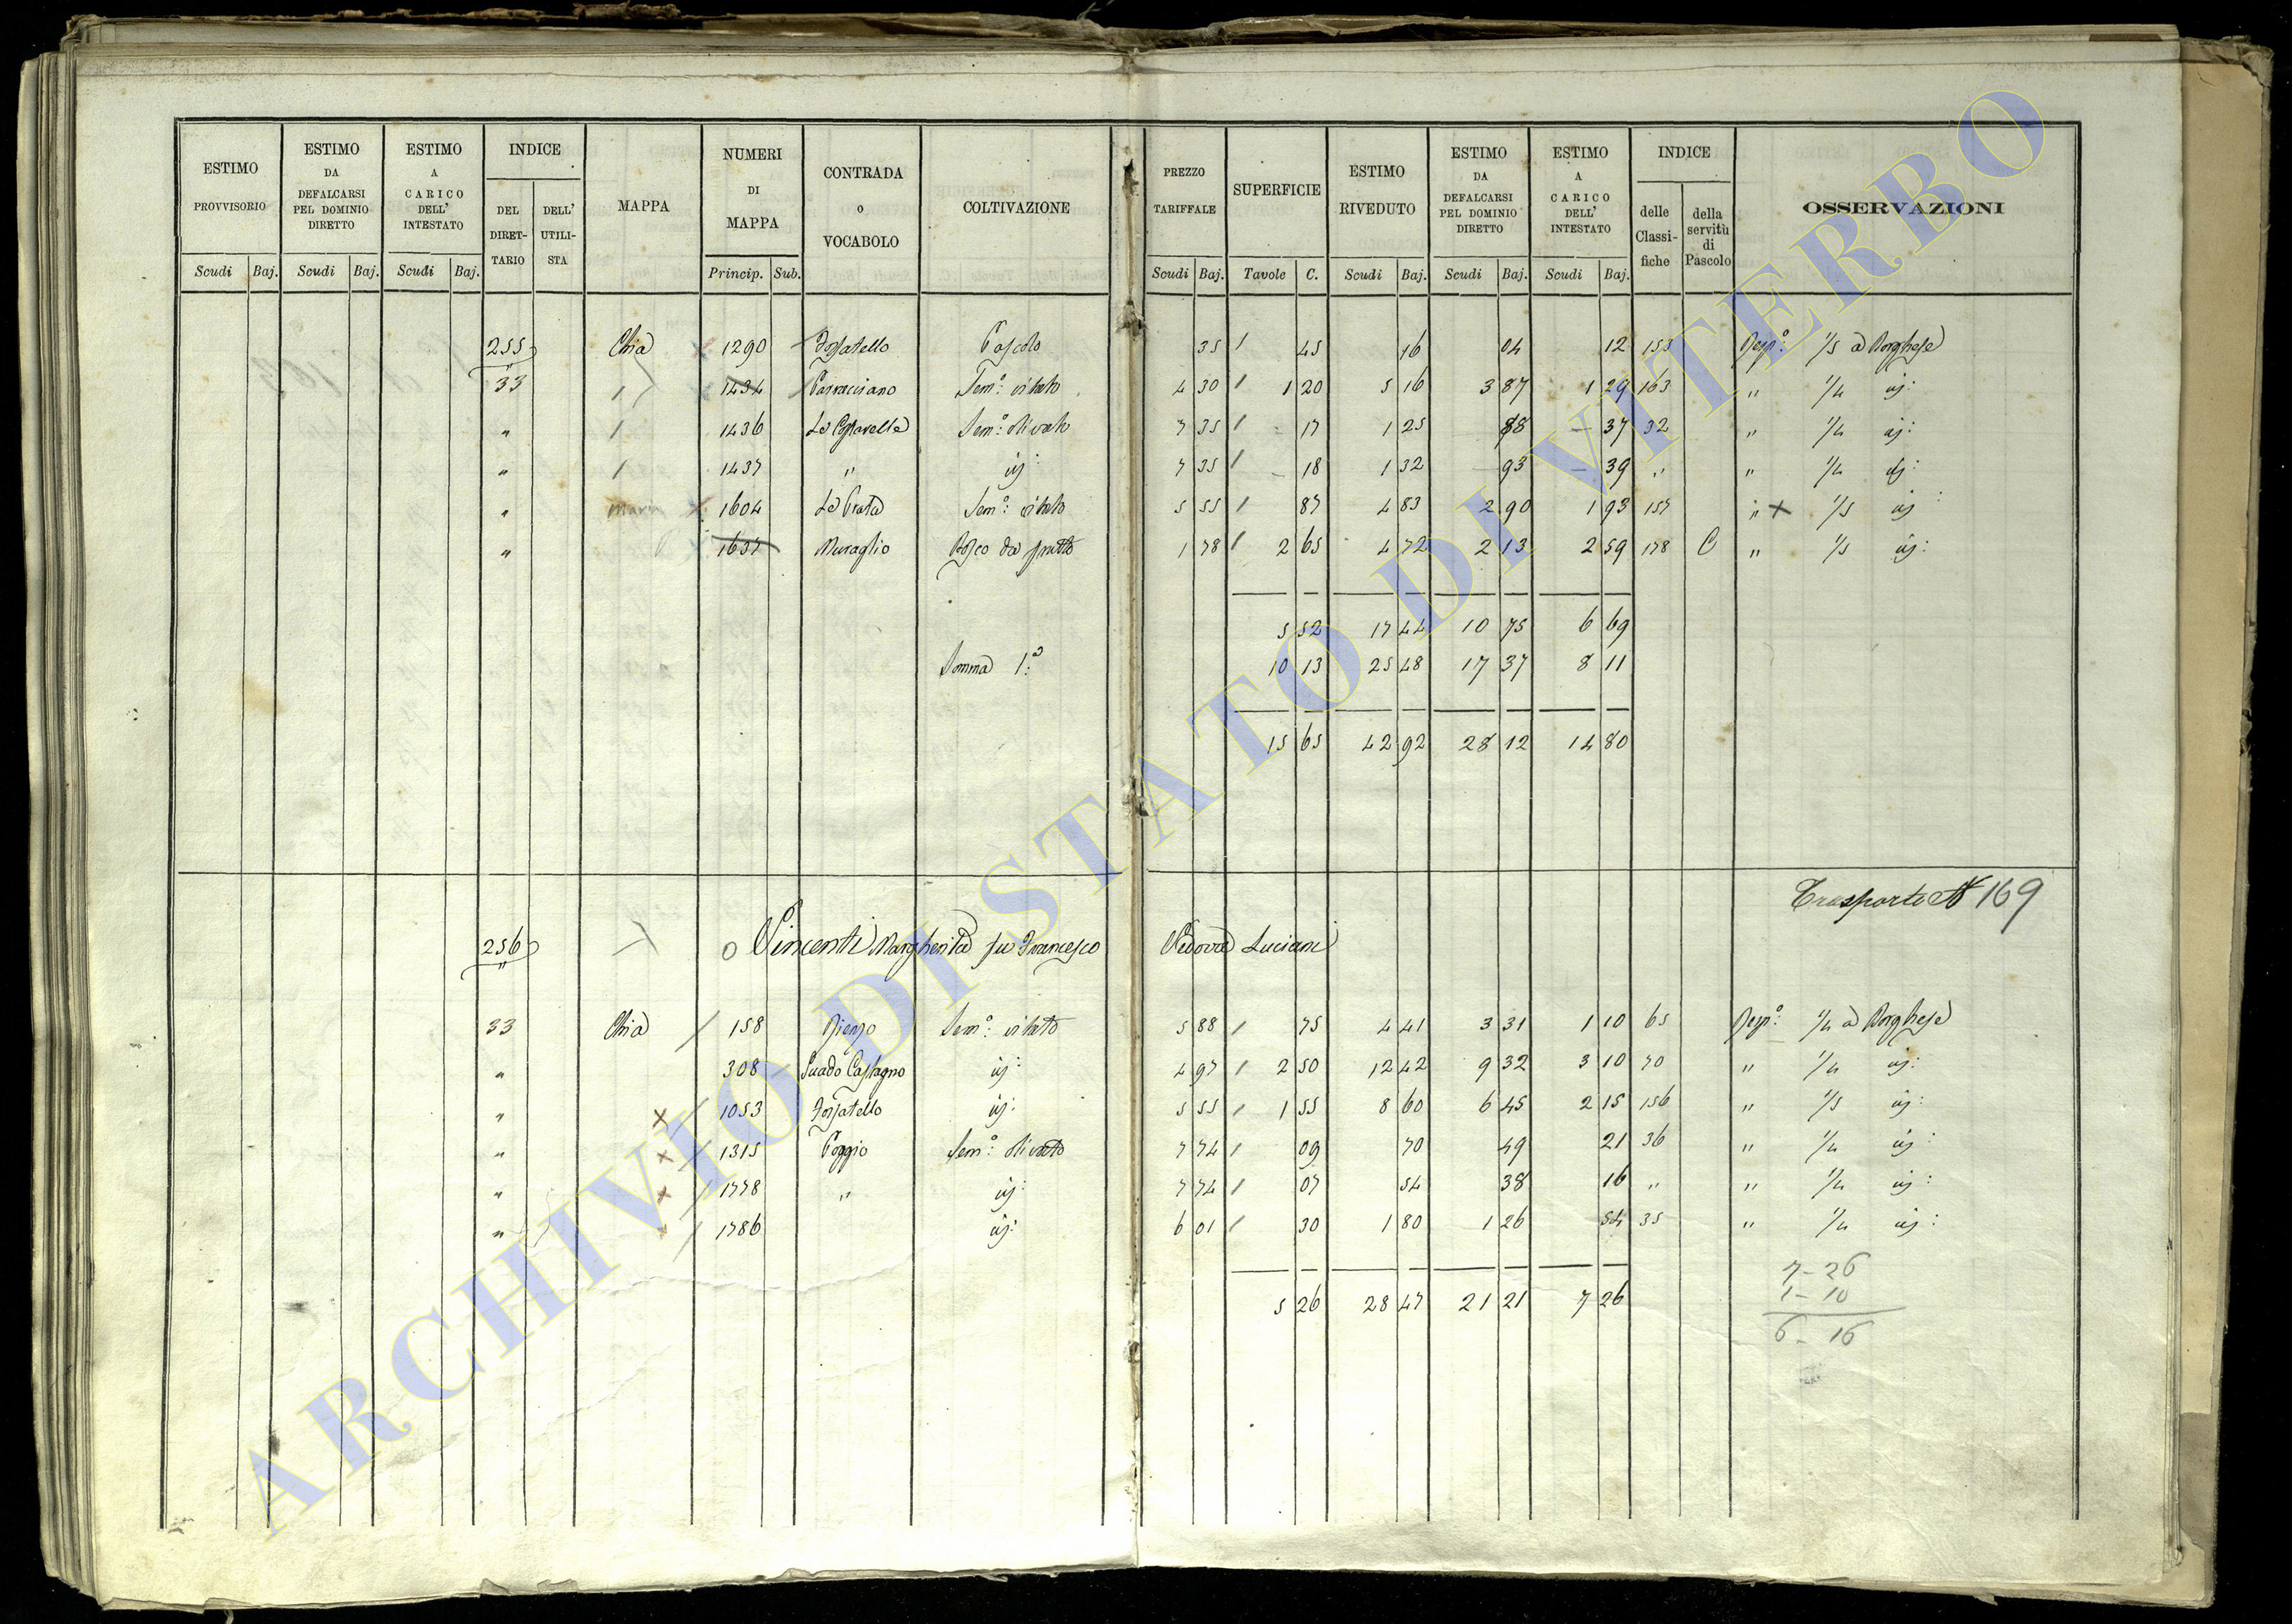 ESTIMO PROVVISORIO | ESTIMO DA DEFALCARSI PEL DOMINIO DIRETTO | ESTIMO A CARICO DELL' INTESTATO | INDICE | MAPPA | NUMERI DI MAPPA | CONTRADA o VOCABOLO | COLTIVAZIONE | PREZZO TARIFFALE | SUPERFICIE | ESTIMO RIVEDUTO | ESTIMO DA DEFALCARSI PEL DOMINIO DIRETTO | ESTIMO A CARICO DELL' INTESTATO | INDICE | OSSERVAZIONI
DEL DIRET-TARIO | DELL' UTILI-STA | delle Classi-fiche | della servitù di Pascolo
Scudi | Baj. | Scudi | Baj. | Scudi | Baj. | Princip. | Sub. | Scudi | Baj. | Tavole | C. | Scudi | Baj. | Scudi | Baj. | Scudi | Baj.
255 Chia 1290 Fossatello Pascolo 35 45 16 04 12 155 Resp.e 1/5 a Borghese
33 " 1434 Sem.o vitato 4 30 1 20 5 16 3 87 1 29 163 " 1/4 id:
" 1436 Sem.o olivato 7 35 - 17 1 25 88 - 37 32 " 1/4 id:
" 1437 " id: 7 35 - 18 1 32 93 - 39 " " 1/4 id:
" 1604 Le Prata Sem.o vitato 5 55 87 4 83 2 90 1 93 157 " 1/5 id
" 1637 Muraglio Bosco da frutto 1 78 2 65 4 72 2 13 2 59 178 C " 1/5 id:
5 52 17 44 10 75 6 69
Somma 1.a 10 13 25 48 17 37 8 11
15 65 42 92 28 12 14 80
Trasporto N 169
256 Vincenti Margherita fu Francesco Vedova Luciani
33 Chia 158 Rienzo Sem.o vitato 5 88 75 4 41 3 31 1 10 65 1/4 a Borghese
" 308 Guado Castagno id: 4 97 2 50 12 42 9 32 3 10 70 " 1/4 id:
" 1053 Fossatello id: 5 55 1 55 8 60 6 45 2 15 156 " 1/5 id:
" 1315 Poggio Sem.o olivato 7 74 09 70 49 21 36 " 1/4 id:
" 1778 " id: 7 74 07 54 38 16 " " 1/4 id:
" 1786 id: 6 01 30 1 80 1 26 54 35 " 1/4 id:
7-26
1-10
5 26 28 47 21 21 7 26
6-16
ARCHIVIO DI STATO DI VITERBO